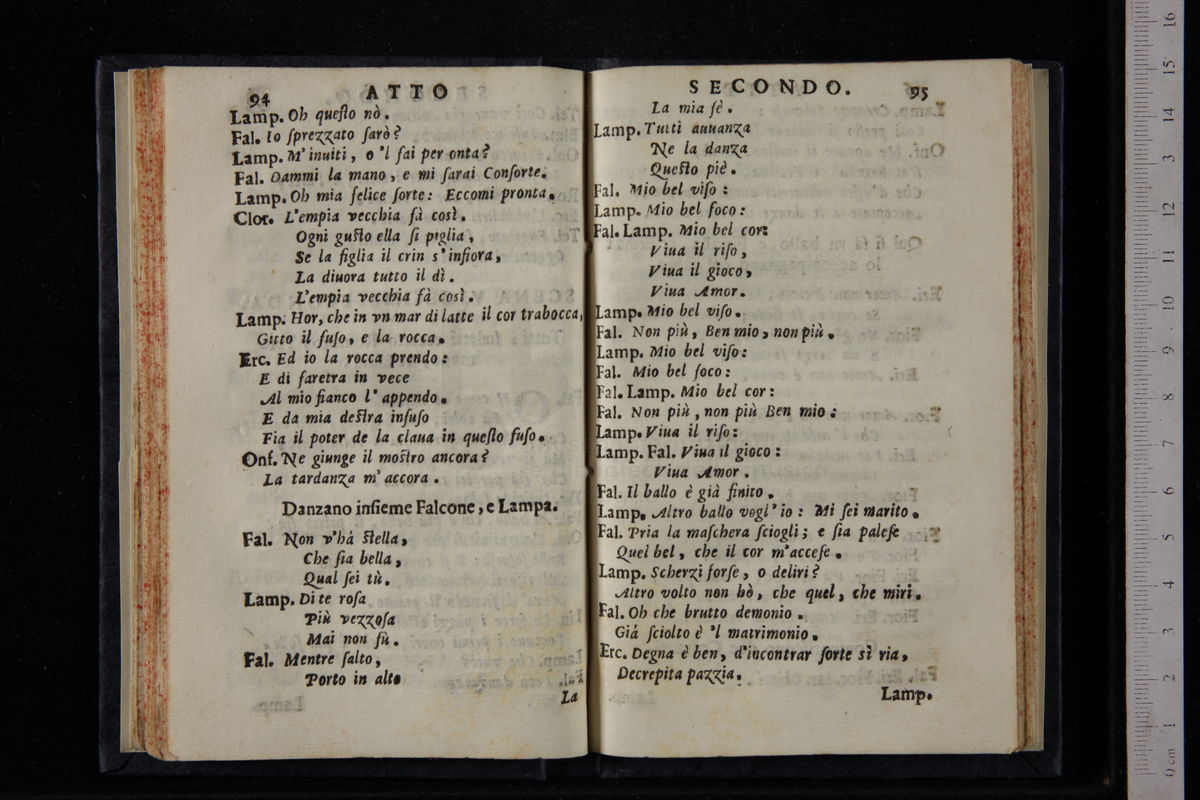 94 ATTO
Lamp. Oh questo nò.
Fal. Io sprezzato sarò?
Lamp. M'inuiti, o 'l fai per onta?
Fal. Dammi la mano, e mi sarai Consorte.
Lamp. Oh mia felice sorte: Eccomi pronta.
Clor. L'empia vecchia fà così.
Ogni gusto ella si piglia,
Se la figlia il crin s'infiora,
La diuora tutto il dì.
L'empia vecchia fà così.
Lamp. Hor, che in vn mar di latte il cor trabocca,
Gitto il fuso, e la rocca.
Erc. Ed io la rocca prendo:
E di faretra in vece
Al mio fianco l'appendo.
E da mia destra infuso
Fia il poter de la claua in questo fuso.
Onf. Ne giunge il mostro ancora?
La tardanza m'accora.
Danzano insieme Falcone, e Lampa.
Fal. Non v'há stella,
Che sia bella,
Qual sei tù.
Lamp. Di te rosa
Più vezzosa
Mai non fù.
Fal. Mentre salto,
Porto in alto
La
SECONDO. 95
La mia fè.
Lamp. Tutti auuanza
Ne la danza
Questo piè.
Fal. Mio bel viso:
Lamp. Mio bel foco:
Fal. Lamp. Mio bel cor:
Viua il riso,
Viua il gioco,
Viua Amor.
Lamp. Mio bel viso.
Fal. Non più, Ben mio, non più.
Lamp. Mio bel viso:
Fal. Mio bel foco:
Fal. Lamp. Mio bel cor:
Fal. Non più, non più Ben mio:
Lamp. Viua il riso:
Lamp. Fal. Viua il gioco:
Viua Amor.
Fal. Il ballo è già finito.
Lamp. Altro ballo vogl'io: Mi sei marito.
Fal. Pria la maschera sciogli; e sia palese
Quel bel, che il cor m'accese.
Lamp. Scherzi forse, o deliri?
Altro volto non hò, che quel, che miri.
Fal. Oh che brutto demonio.
Giá sciolto è 'l matrimonio.
Erc. Degna è ben, d'incontrar sorte sì ria,
Decrepita pazzia.
Lamp.
0 cm 1 2 3 4 5 6 7 8 9 10 11 12 13 14 15 16